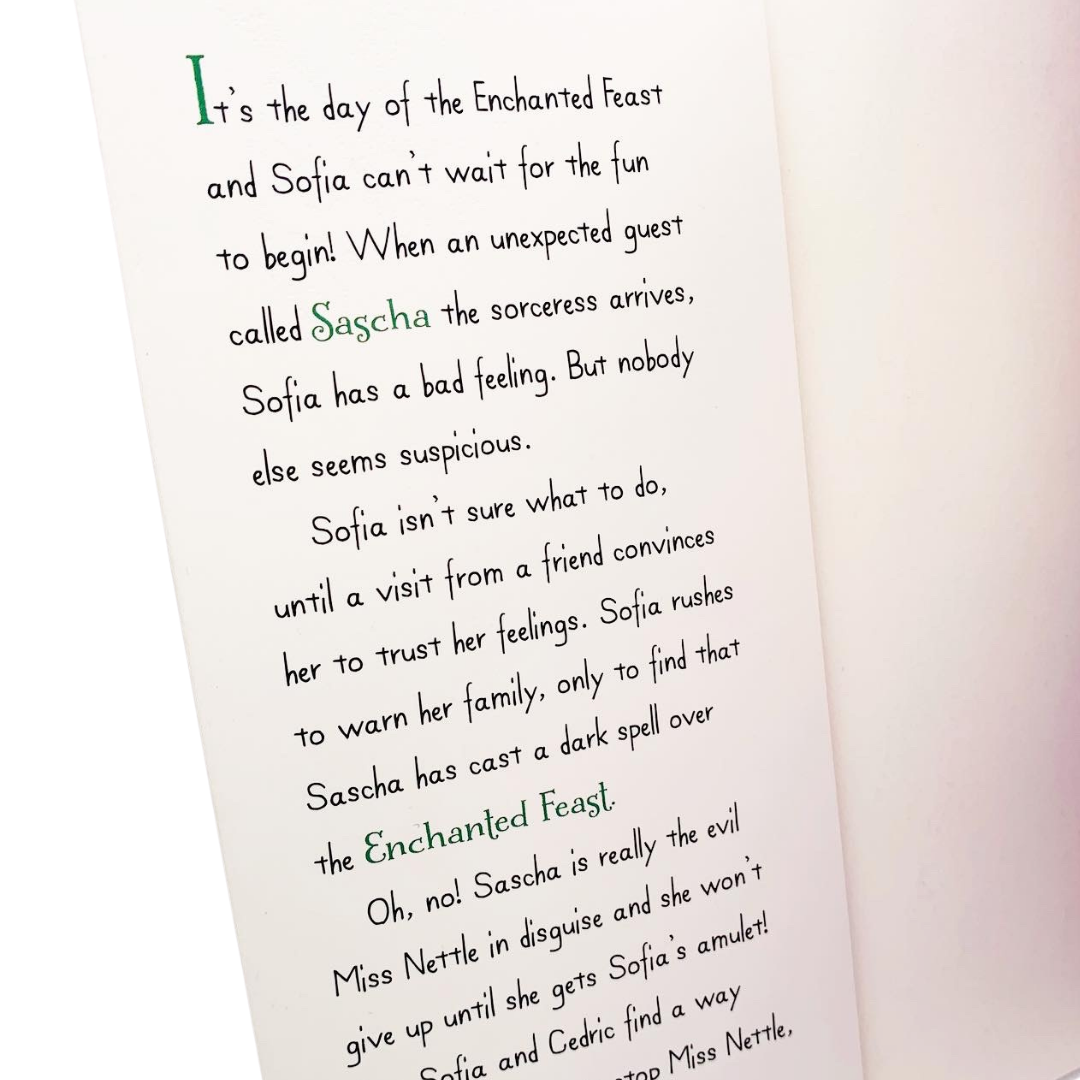 It's the day of the Enchanted Feast
and Sofia can't wait for the fun
to begin! When an unexpected guest
called Sascha the sorceress arrives,
Sofia has a bad feeling. But nobody
else seems suspicious.
Sofia isn't sure what to do,
until a visit from a friend convinces
her to trust her feelings. Sofia rushes
to warn her family, only to find that
Sascha has cast a dark spell over
the Enchanted Feast.
Oh, no! Sascha is really the evil
Miss Nettle in disguise and she won't
give up until she gets Sofia's amulet!
Sofia and Cedric find a way
stop Miss Nettle,